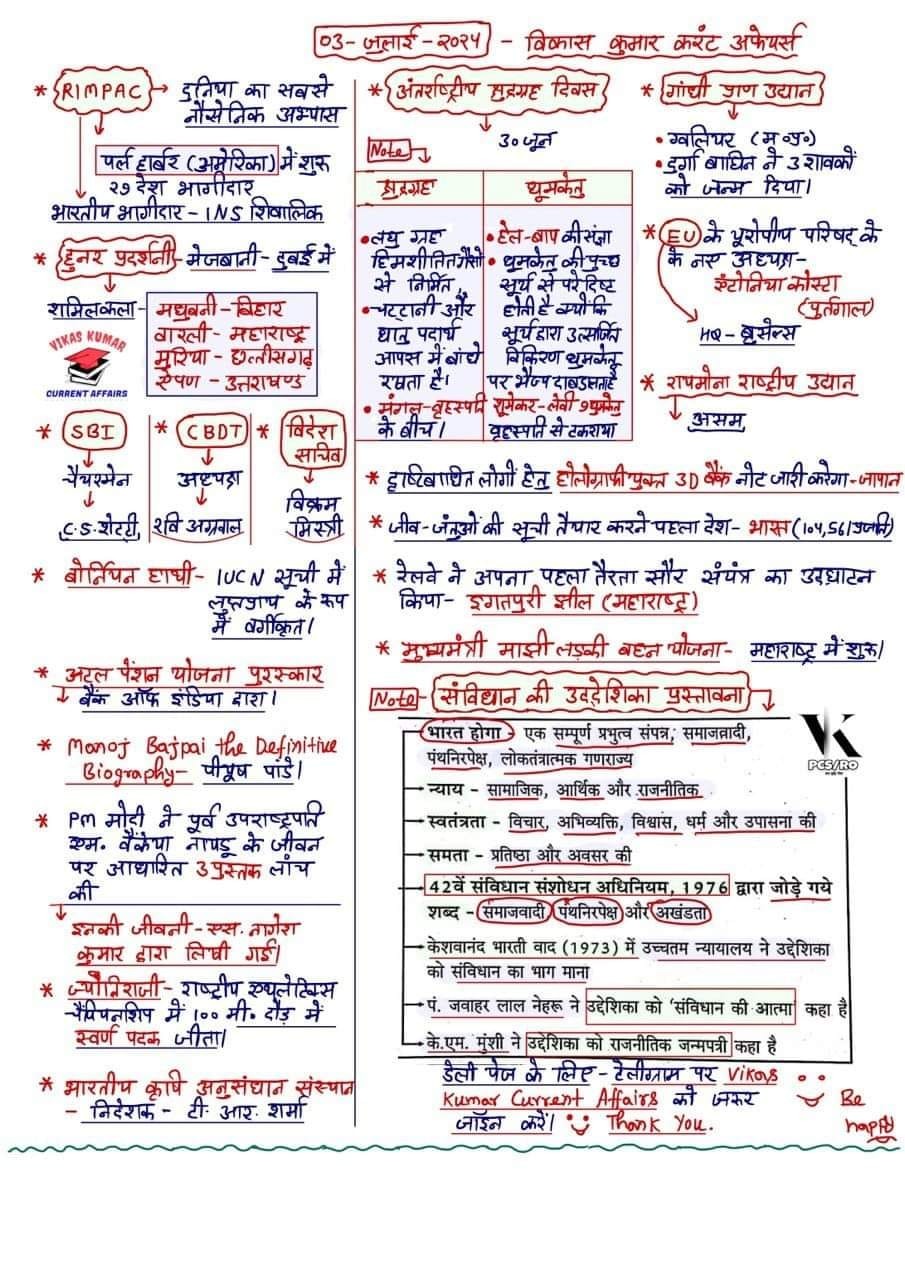 ०३ - जुलाई - २०२५ - विकास कुमार करंट अफेयर्स
* RIMPAC → दुनिया का सबसे
नौसैनिक अभ्यास
पर्ल हार्बर (अमेरिका) में शुरू
२७ देश भागीदार
भारतीय भागीदार - INS शिवालिक
* हुनर प्रदर्शनी - मेजबानी - दुबई में
शामिल कला - मधुबनी - बिहार
वारली - महाराष्ट्र
मुरिया - छत्तीसगढ़
ऐपण - उत्तराखण्ड
VIKAS KUMAR
CURRENT AFFAIRS
* SBI
चैयरमेन
C.S. शेट्टी
* CBDT
अध्यक्ष
रवि अग्रवाल
* विदेश
सचिव
विक्रम
मिस्त्री
* बोर्नियन हाथी - IUCN सूची में
लुप्तप्राय के रूप
में वर्गीकृत।
* अटल पेंशन योजना पुरस्कार
बैंक ऑफ इंडिया द्वारा।
* Manoj Bajpai the Definitive
Biography - पीयूष पांडे।
* PM मोदी ने पूर्व उपराष्ट्रपति
एम. वैंकेया नायडू के जीवन
पर आधारित 3 पुस्तक लांच
की
इनकी जीवनी - एस. नागेश
कुमार द्वारा लिखी गई।
* ज्योतिराजी - राष्ट्रीय एथलेटिक्स
चैंपियनशिप में १०० मी. दौड़ में
स्वर्ण पदक जीता।
* भारतीय कृषि अनुसंधान संस्थान
- निदेशक - टी. आर. शर्मा
* अंतर्राष्ट्रीय क्षुद्रग्रह दिवस
30 जून
Note
क्षुद्रग्रह
• लघु ग्रह
हिमशीतित गैसों
से निर्मित,
• चट्टानी और
धातु पदार्थ
आपस में बांधे
रखता है।
• मंगल - वृहस्पति
के बीच।
धूमकेतु
• हेल-बाप की संज्ञा
• धूमकेतु की पुच्छ
सूर्य से परे दिष्ट
होती है क्योंकि
सूर्य द्वारा उत्सर्जित
विकिरण धूमकेतु
पर दाब डालता है
शूमेकर - लेवी ९ धूमकेतु
वृहस्पति से टकराया
* गांधी प्राण उद्यान
• ग्वालियर (म०प्र०)
• दुर्गा बाघिन ने 3 शावकों
को जन्म दिया।
* EU के यूरोपीय परिषद् के
के नए अध्यक्ष -
इंटोनिया कोस्टा
(पुर्तगाल)
HQ - ब्रुसेल्स
* रायमोना राष्ट्रीय उद्यान
असम
* दृष्टिबाधित लोगों हेतु होलोग्राफी युक्त 3D बैंक नोट जारी करेगा - जापान
* जीव-जंतुओं की सूची तैयार करने पहला देश - भारत (104,561 प्रजाति)
* रेलवे ने अपना पहला तैरता सौर संयंत्र का उद्घाटन
किया - इगतपुरी झील (महाराष्ट्र)
* मुख्यमंत्री माझी लड़की बहन योजना - महाराष्ट्र में शुरू।
Note - संविधान की उद्देशिका प्रस्तावना
भारत होगा - एक सम्पूर्ण प्रभुत्व संपन्न, समाजवादी,
पंथनिरपेक्ष, लोकतंत्रात्मक गणराज्य
न्याय - सामाजिक, आर्थिक और राजनीतिक
स्वतंत्रता - विचार, अभिव्यक्ति, विश्वास, धर्म और उपासना की
समता - प्रतिष्ठा और अवसर की
42वें संविधान संशोधन अधिनियम, 1976 द्वारा जोड़े गये
शब्द - समाजवादी पंथनिरपेक्ष और अखंडता
केशवानंद भारती वाद (1973) में उच्चतम न्यायालय ने उद्देशिका
को संविधान का भाग माना
पं. जवाहर लाल नेहरू ने उद्देशिका को 'संविधान की आत्मा' कहा है
के.एम. मुंशी ने उद्देशिका को राजनीतिक जन्मपत्री कहा है
VK
PCS/RO
डेली पेज के लिए - टेलीग्राम पर Vikas
Kumar Current Affairs को जरूर
जॉइन करें। Thank You.
Be
happy